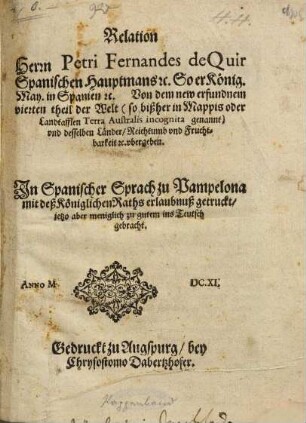 Relation
Herrn Petri Fernandes de Quir
Spanischen Hauptmans ꝛc. So er König.
May. in Spanien ꝛc. Von dem new erfundnem
vierten theil der Welt (so bißher in Mappis oder
Landtafflen Terra Australis incognita genannt)
vnd desselben Länder/ Reichtumb vnd Frucht-
barkeit ꝛc. vbergeben.
In Spanischer Sprach zu Pampelona
mit deß Königlichen Raths erlaubnuß getruckt/
jetzo aber meniglich zu gutem ins Teutsch
gebracht.
ANNO M. DC.XI.
Gedruckt zu Augspurg/ bey
Chrysostomo Dabertzhofer.